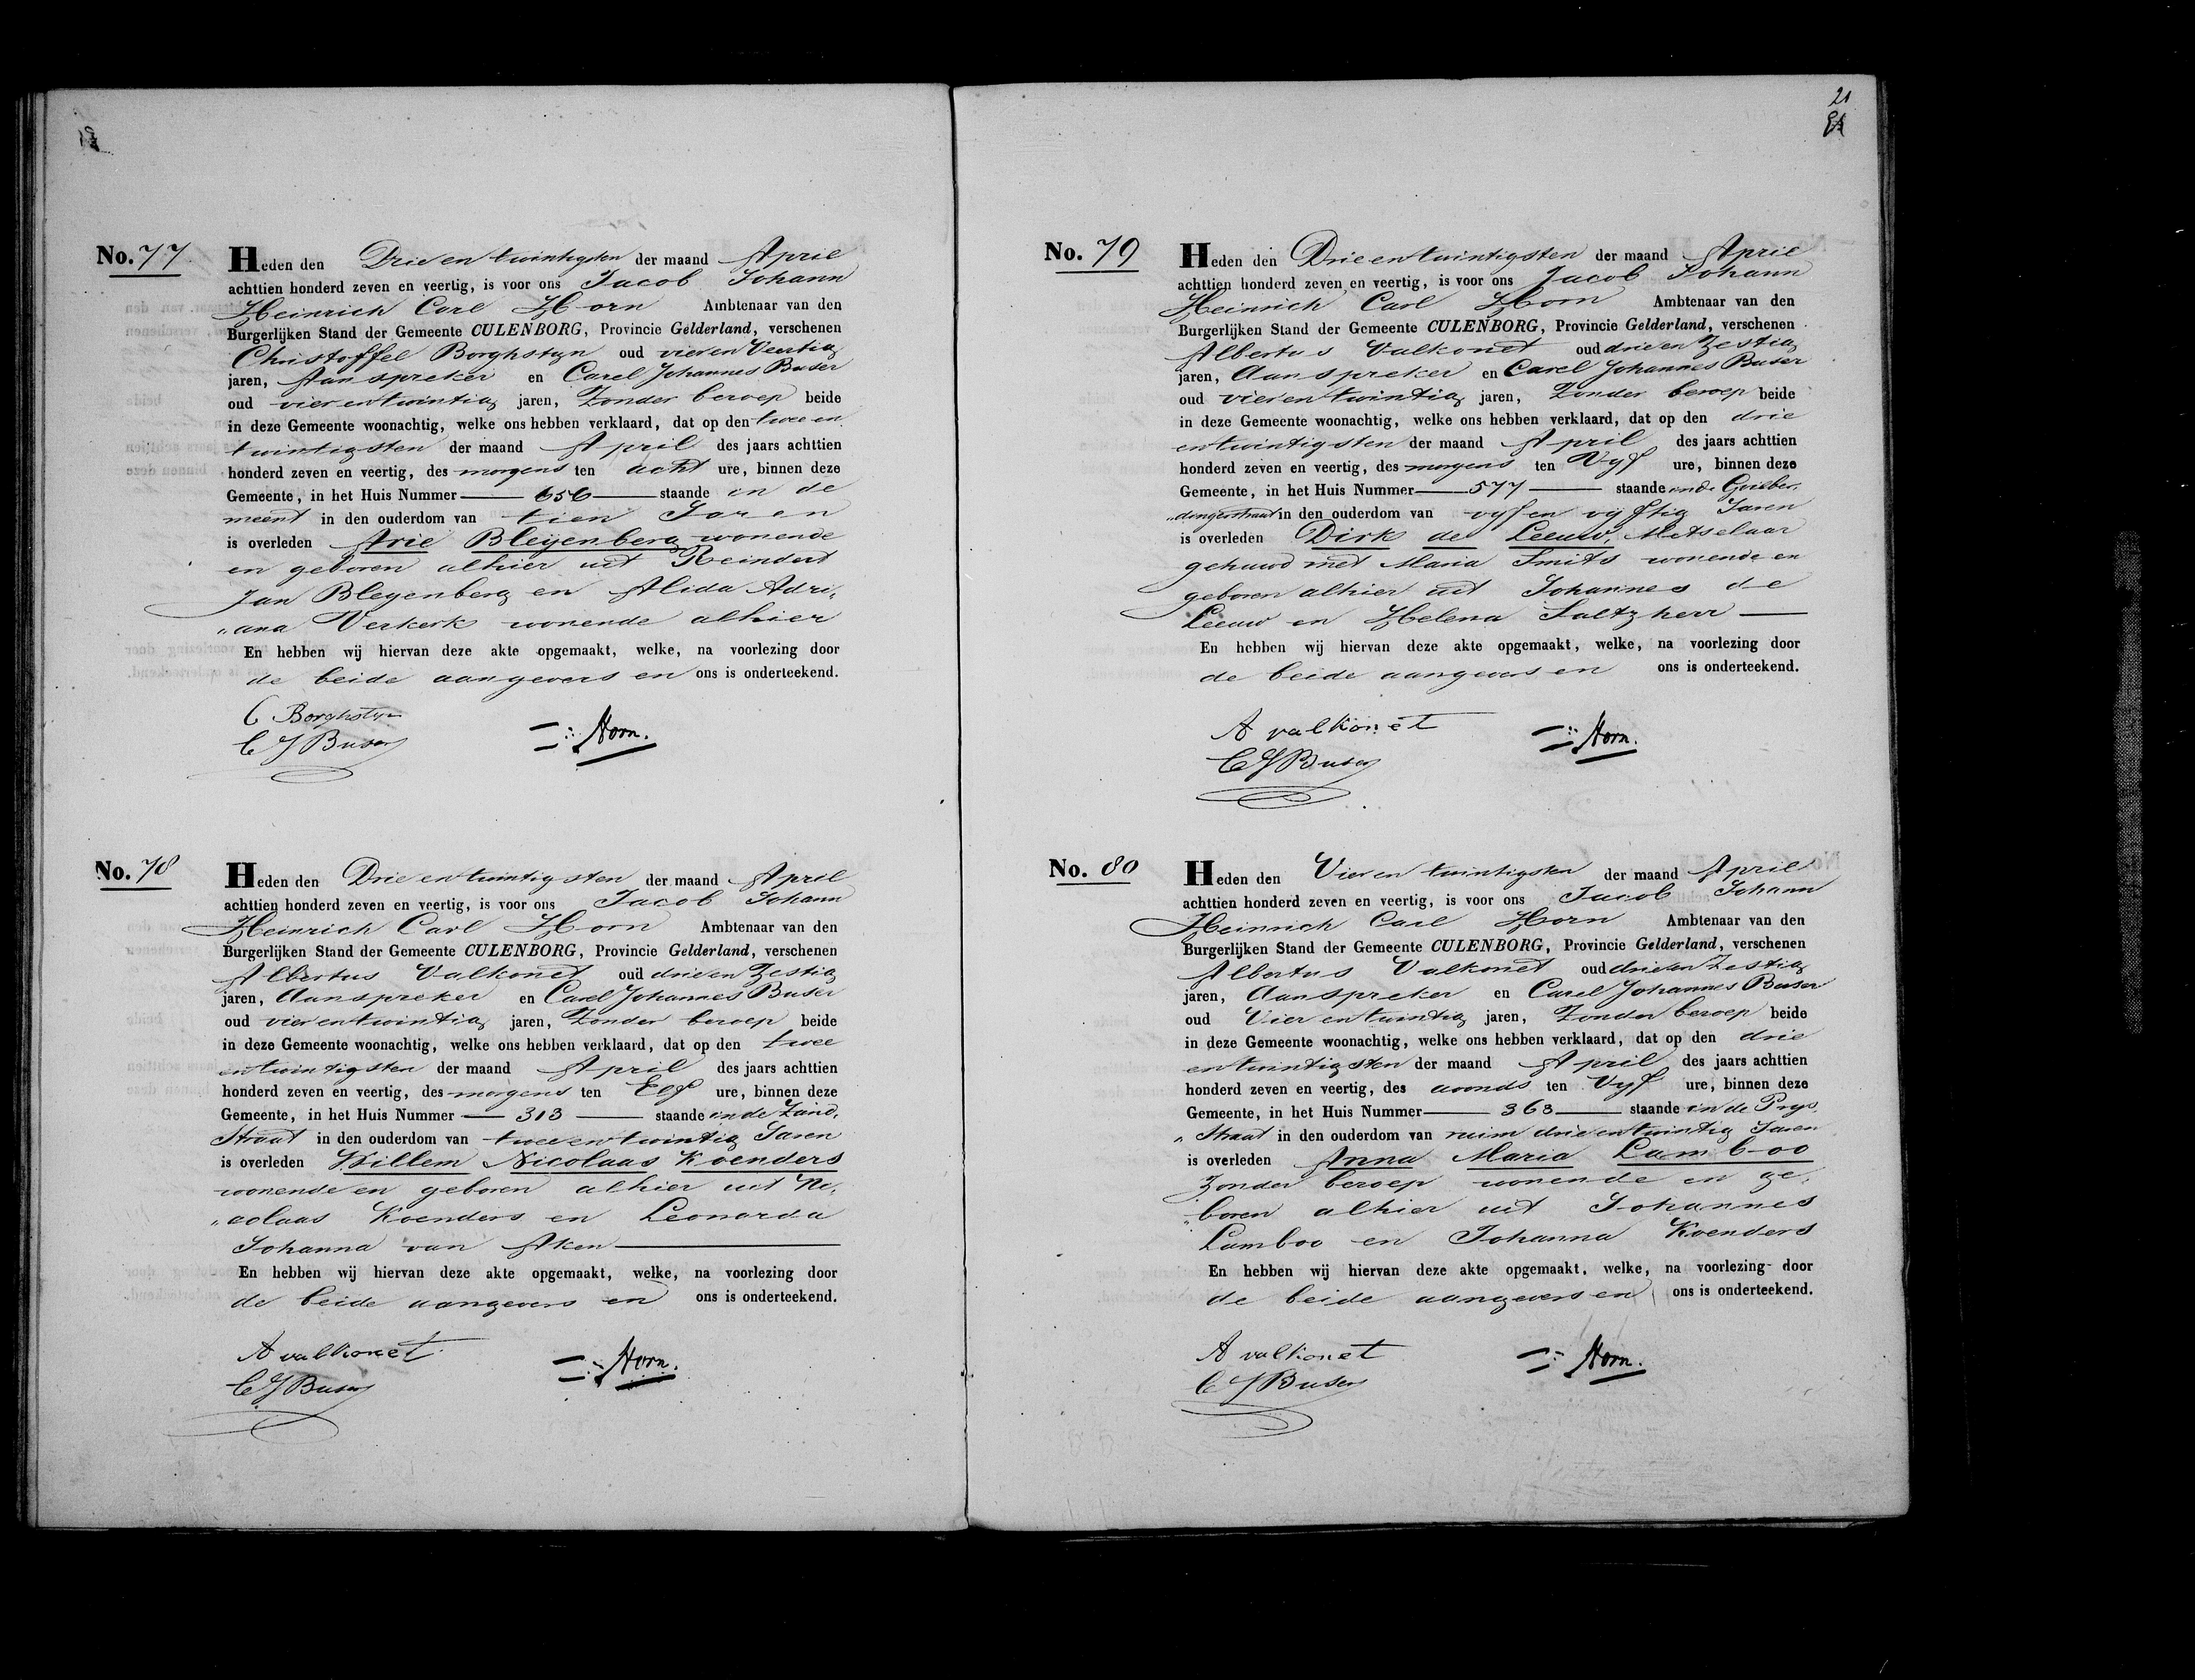 No. 77
Heden den Drie en twintigsten der maand April
achttien honderd zeven en veertig, is voor ons Jacob Johann
Heinrich Carl Horn Ambtenaar van den
Burgerlijken Stand der Gemeente CULENBORG, Provincie Gelderland, verschenen
Christoffel Borghstyn oud vier en Veertig
jaren, Aanspreker en Carel Johannes Buser
oud vier en twintig jaren, Zonder beroep beide
in deze Gemeente woonachtig, welke ons hebben verklaard, dat op den twee en
twintigsten der maand April des jaars achttien
honderd zeven en veertig, des morgens ten acht ure, binnen deze
Gemeente, in het Huis Nummer 656 staande in de
meent in den ouderdom van tien Jaren
is overleden Arie Bleyenberg wonende
en geboren alhier uit Reindert
Jan Bleyenberg en Alida Adri,
"ana Verkerk wonende alhier
En hebben wij hiervan deze akte opgemaakt, welke, na voorlezing door
de beide aangevers en ons is onderteekend.
C Borghstyn
C J Buser
Horn.
No. 78
Heden den Drie en twintigsten der maand April
achttien honderd zeven en veertig, is voor ons Jacob Johann
Heinrich Carl Horn Ambtenaar van den
Burgerlijken Stand der Gemeente CULENBORG, Provincie Gelderland, verschenen
Albertus Valkonet oud drie en Zestig
jaren, Aanspreker en Carel Johannes Buser
oud vier en twintig jaren, Zonder beroep beide
in deze Gemeente woonachtig, welke ons hebben verklaard, dat op den twee
en twintigsten der maand April des jaars achttien
honderd zeven en veertig, des morgens ten Elf ure, binnen deze
Gemeente, in het Huis Nummer 313 staande in de Zand,
Straat in den ouderdom van twee en twintig Jaren
is overleden Willem Nicolaas Koenders
wonende en geboren alhier uit Ni,
"colaas Koenders en Leonarda
Johanna van Aken
En hebben wij hiervan deze akte opgemaakt, welke, na voorlezing door
de beide aangevers en ons is onderteekend.
A valkonet
C J Buser
Horn.
21
No. 79
Heden den Drie en twintigsten der maand April
achttien honderd zeven en veertig, is voor ons Jacob Johann
Heinrich Carl Horn Ambtenaar van den
Burgerlijken Stand der Gemeente CULENBORG, Provincie Gelderland, verschenen
Albertus Valkonet oud drie en Zestig
jaren, Aanspreker en Carel Johannes Buser
oud vier en twintig jaren, Zonder beroep beide
in deze Gemeente woonachtig, welke ons hebben verklaard, dat op den drie
en twintigsten der maand April des jaars achttien
honderd zeven en veertig, des morgens ten Vyf ure, binnen deze
Gemeente, in het Huis Nummer 577 staande in de Goilber,
"dingerstraat in den ouderdom van vyf en vyftig Jaren
is overleden Dirk de Leeuw, Metselaar
gehuwd met Maria Smits wonende en
geboren alhier uit Johannes de
Leeuw en Helena Saltzherr
En hebben wij hiervan deze akte opgemaakt, welke, na voorlezing door
de beide aangevers en ons is onderteekend.
A valkonet
C J Buser
Horn.
No. 80
Heden den Vier en twintigsten der maand April
achttien honderd zeven en veertig, is voor ons Jacob Johann
Heinrich Carl Horn Ambtenaar van den
Burgerlijken Stand der Gemeente CULENBORG, Provincie Gelderland, verschenen
Albertus Valkonet oud drie en Zestig
jaren, Aanspreker en Carel Johannes Buser
oud Vier en twintig jaren, Zonder beroep beide
in deze Gemeente woonachtig, welke ons hebben verklaard, dat op den drie
en twintigsten der maand April des jaars achttien
honderd zeven en veertig, des avonds ten Vyf ure, binnen deze
Gemeente, in het Huis Nummer 363 staande in de Prys,
"Straat in den ouderdom van ruim drie en twintig Jaren
is overleden Anna Maria Lamboo
Zonder beroep wonende en ge,
"boren alhier uit Johannes
Lamboo en Johanna Koenders
En hebben wij hiervan deze akte opgemaakt, welke, na voorlezing door
de beide aangevers en ons is onderteekend.
A valkonet
C J Buser
Horn.